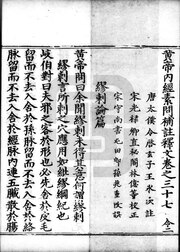 黃帝內經素問補註釋文卷之三十七
唐太僕令啓玄子王冰次註
宋光祿卿直祕閣林億等校正
宋守尚書屯田郎孫兆重改誤
繆刺論篇
黃帝問曰余聞繆刺未得其意何謂繆刺
岐伯對曰夫邪之客於形也必先舍於皮毛
留而不去入舍於孫脉留而不去入舍於絡
脉留而不去入舍於經脉內連五藏散於腸